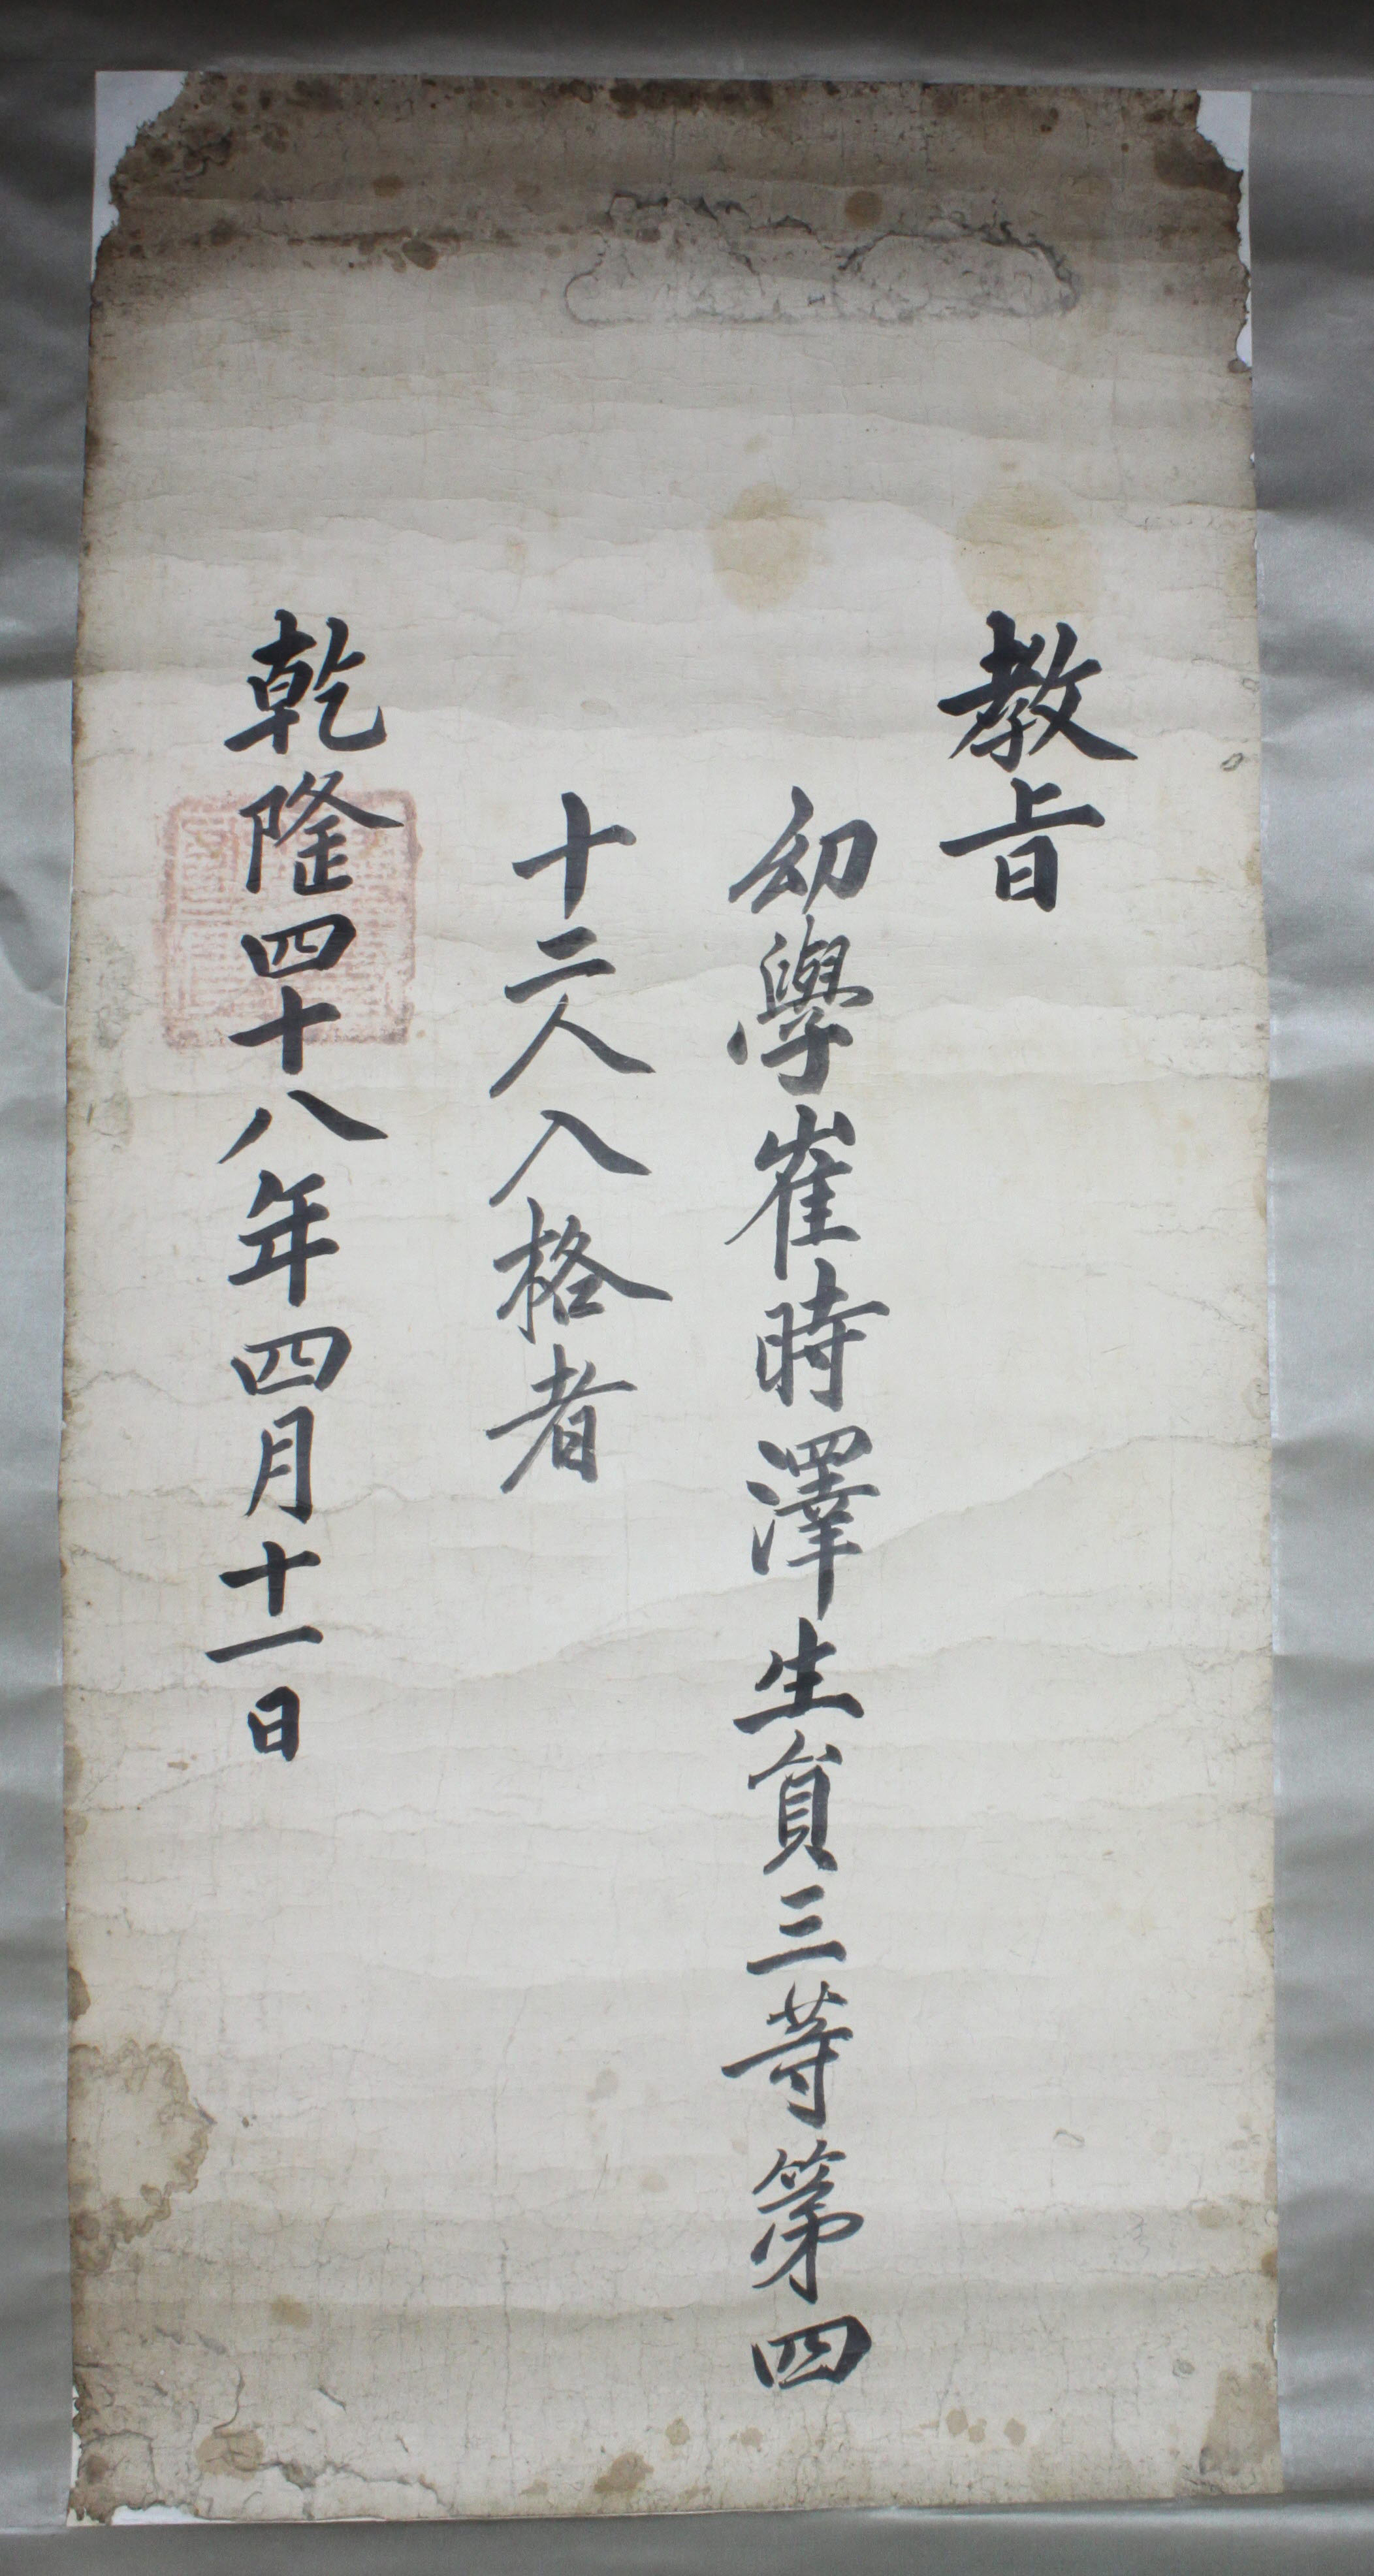 教旨
幼學崔時澤生員三等第四
十二人入格者
乾隆四十八年四月十一日